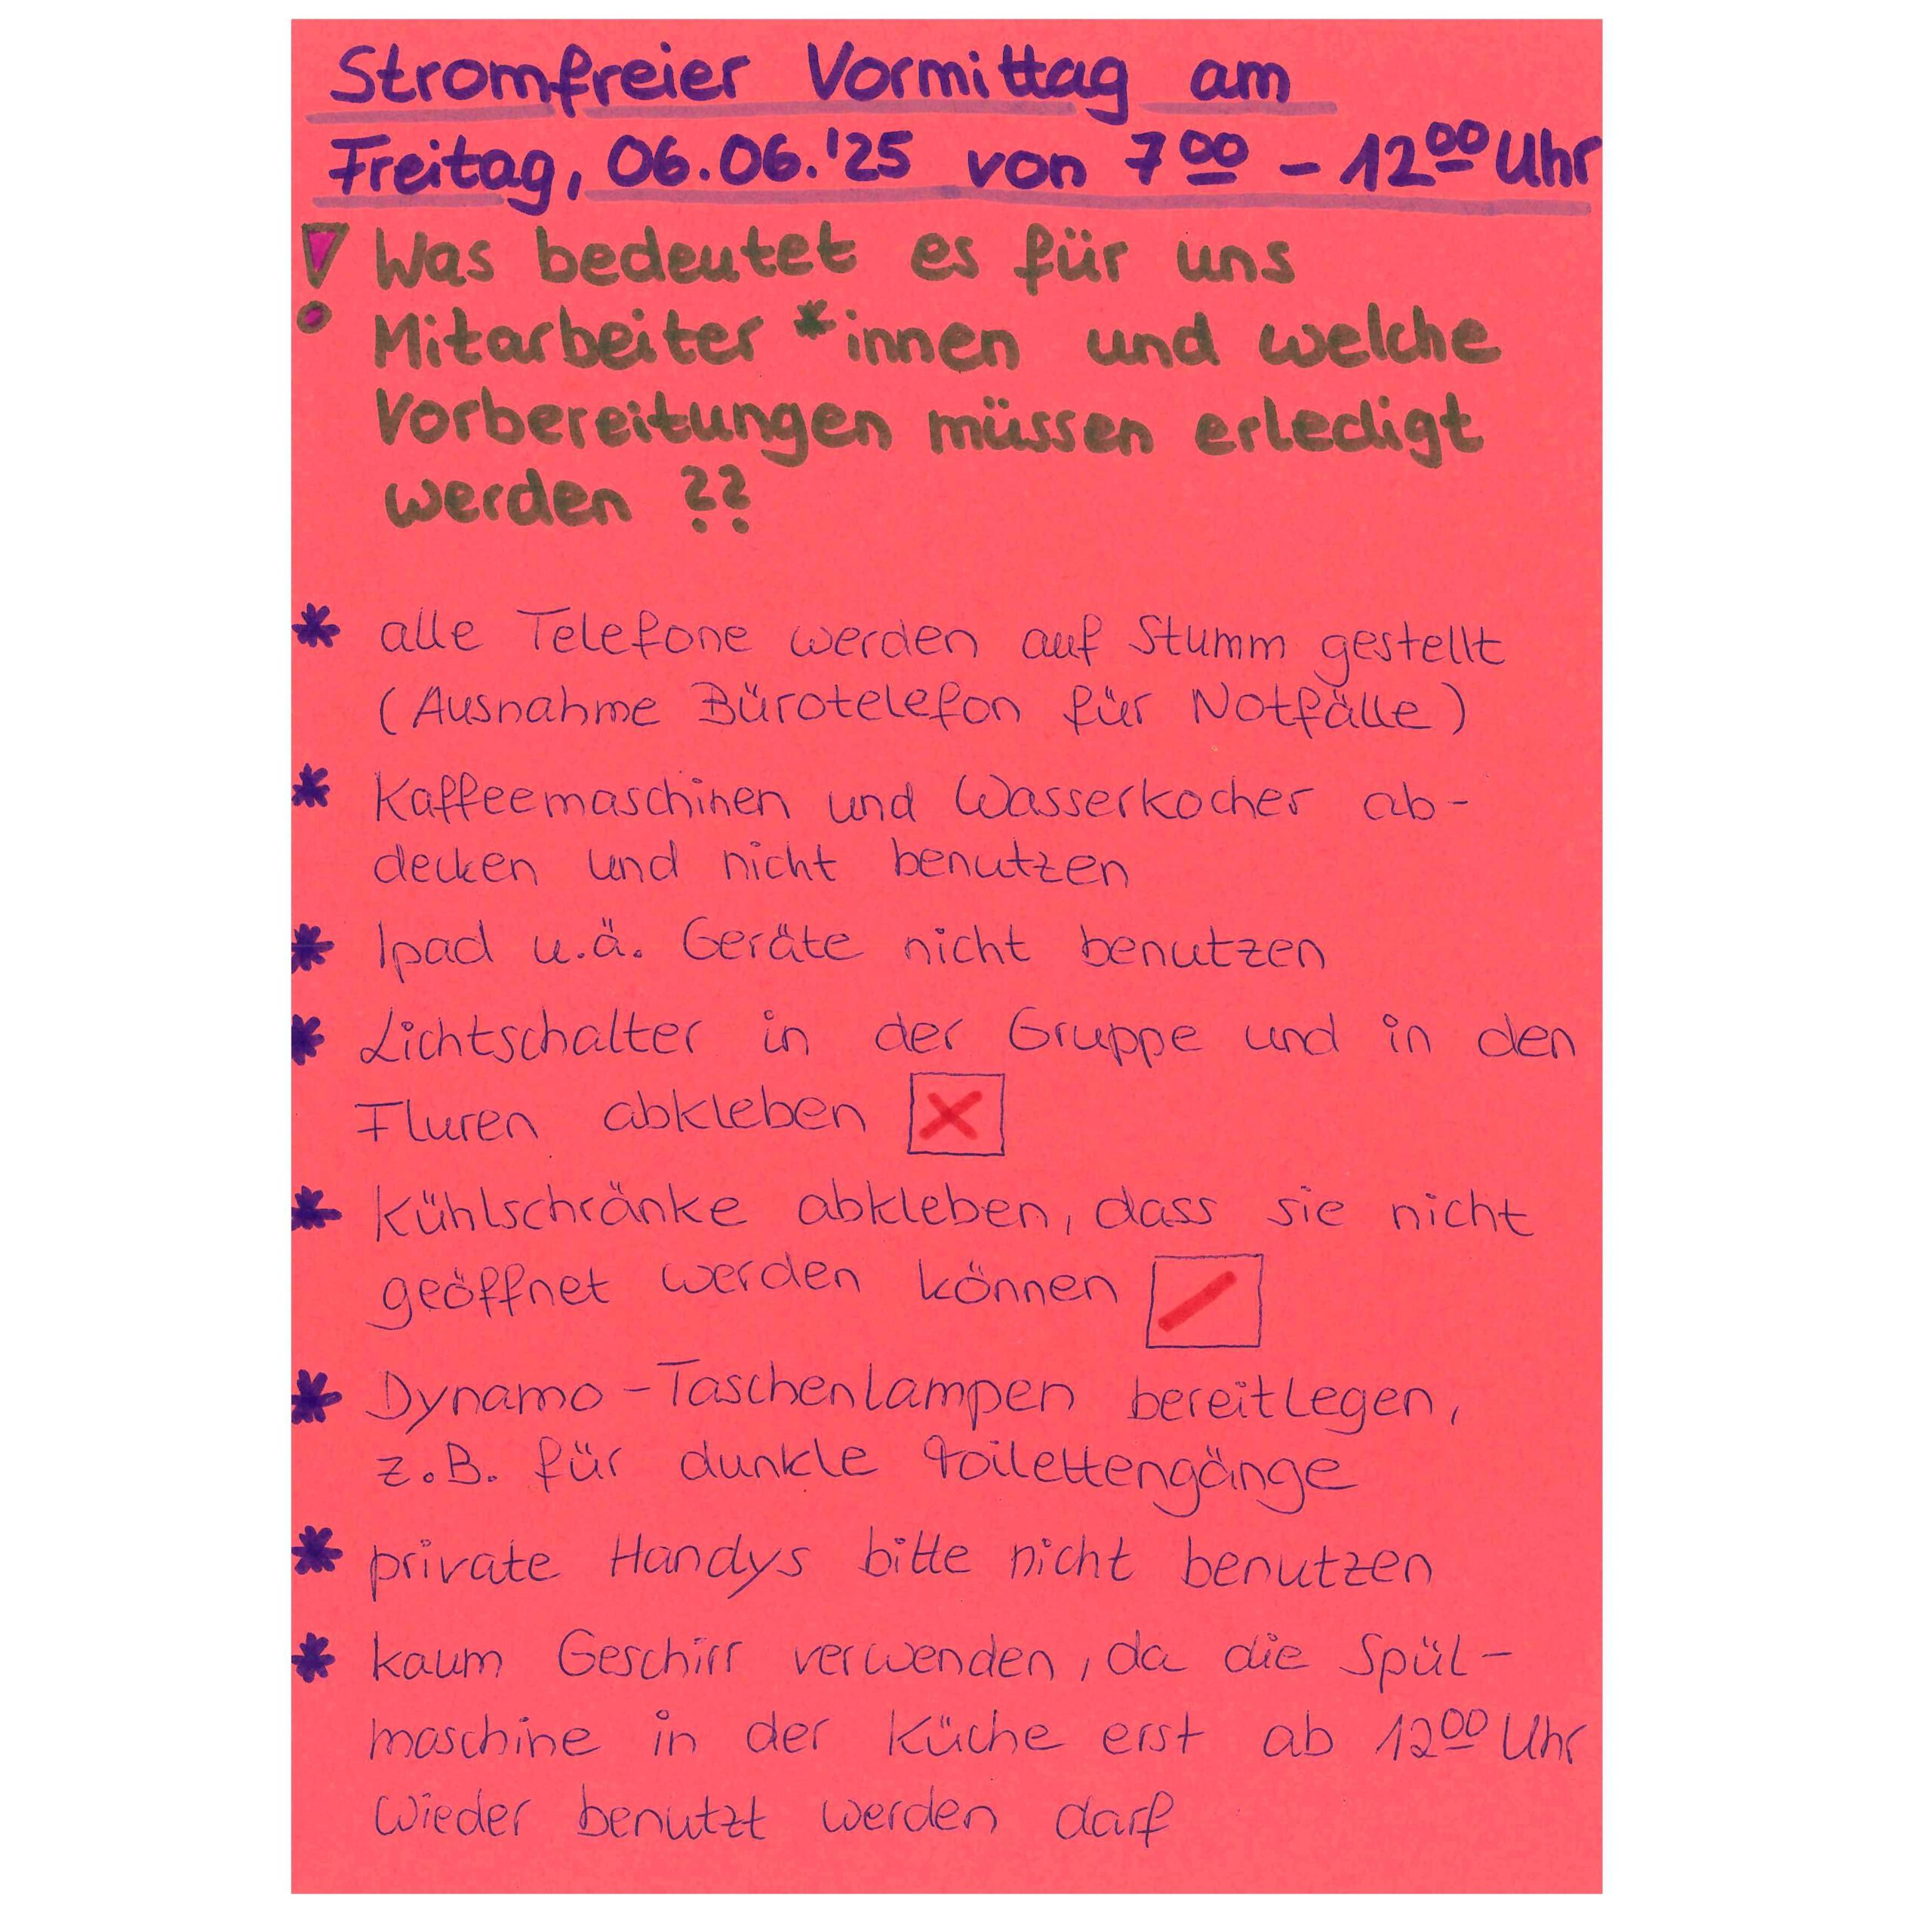 Stromfreier Vormittag am
Freitag, 06.06.'25 von 7⁰⁰ - 12⁰⁰ Uhr
! Was bedeutet es für uns
Mitarbeiter*innen und welche
Vorbereitungen müssen erledigt
werden ??
* alle Telefone werden auf Stumm gestellt
(Ausnahme Bürotelefon für Notfälle)
* Kaffeemaschinen und Wasserkocher ab-
decken und nicht benutzen
* Ipad u.ä. Geräte nicht benutzen
* Lichtschalter in der Gruppe und in den
Fluren abkleben
* Kühlschränke abkleben, dass sie nicht
geöffnet werden können
* Dynamo-Taschenlampen bereitlegen,
z.B. für dunkle Toilettengänge
* private Handys bitte nicht benutzen
* kaum Geschirr verwenden, da die Spül-
maschine in der Küche erst ab 12⁰⁰ Uhr
wieder benutzt werden darf